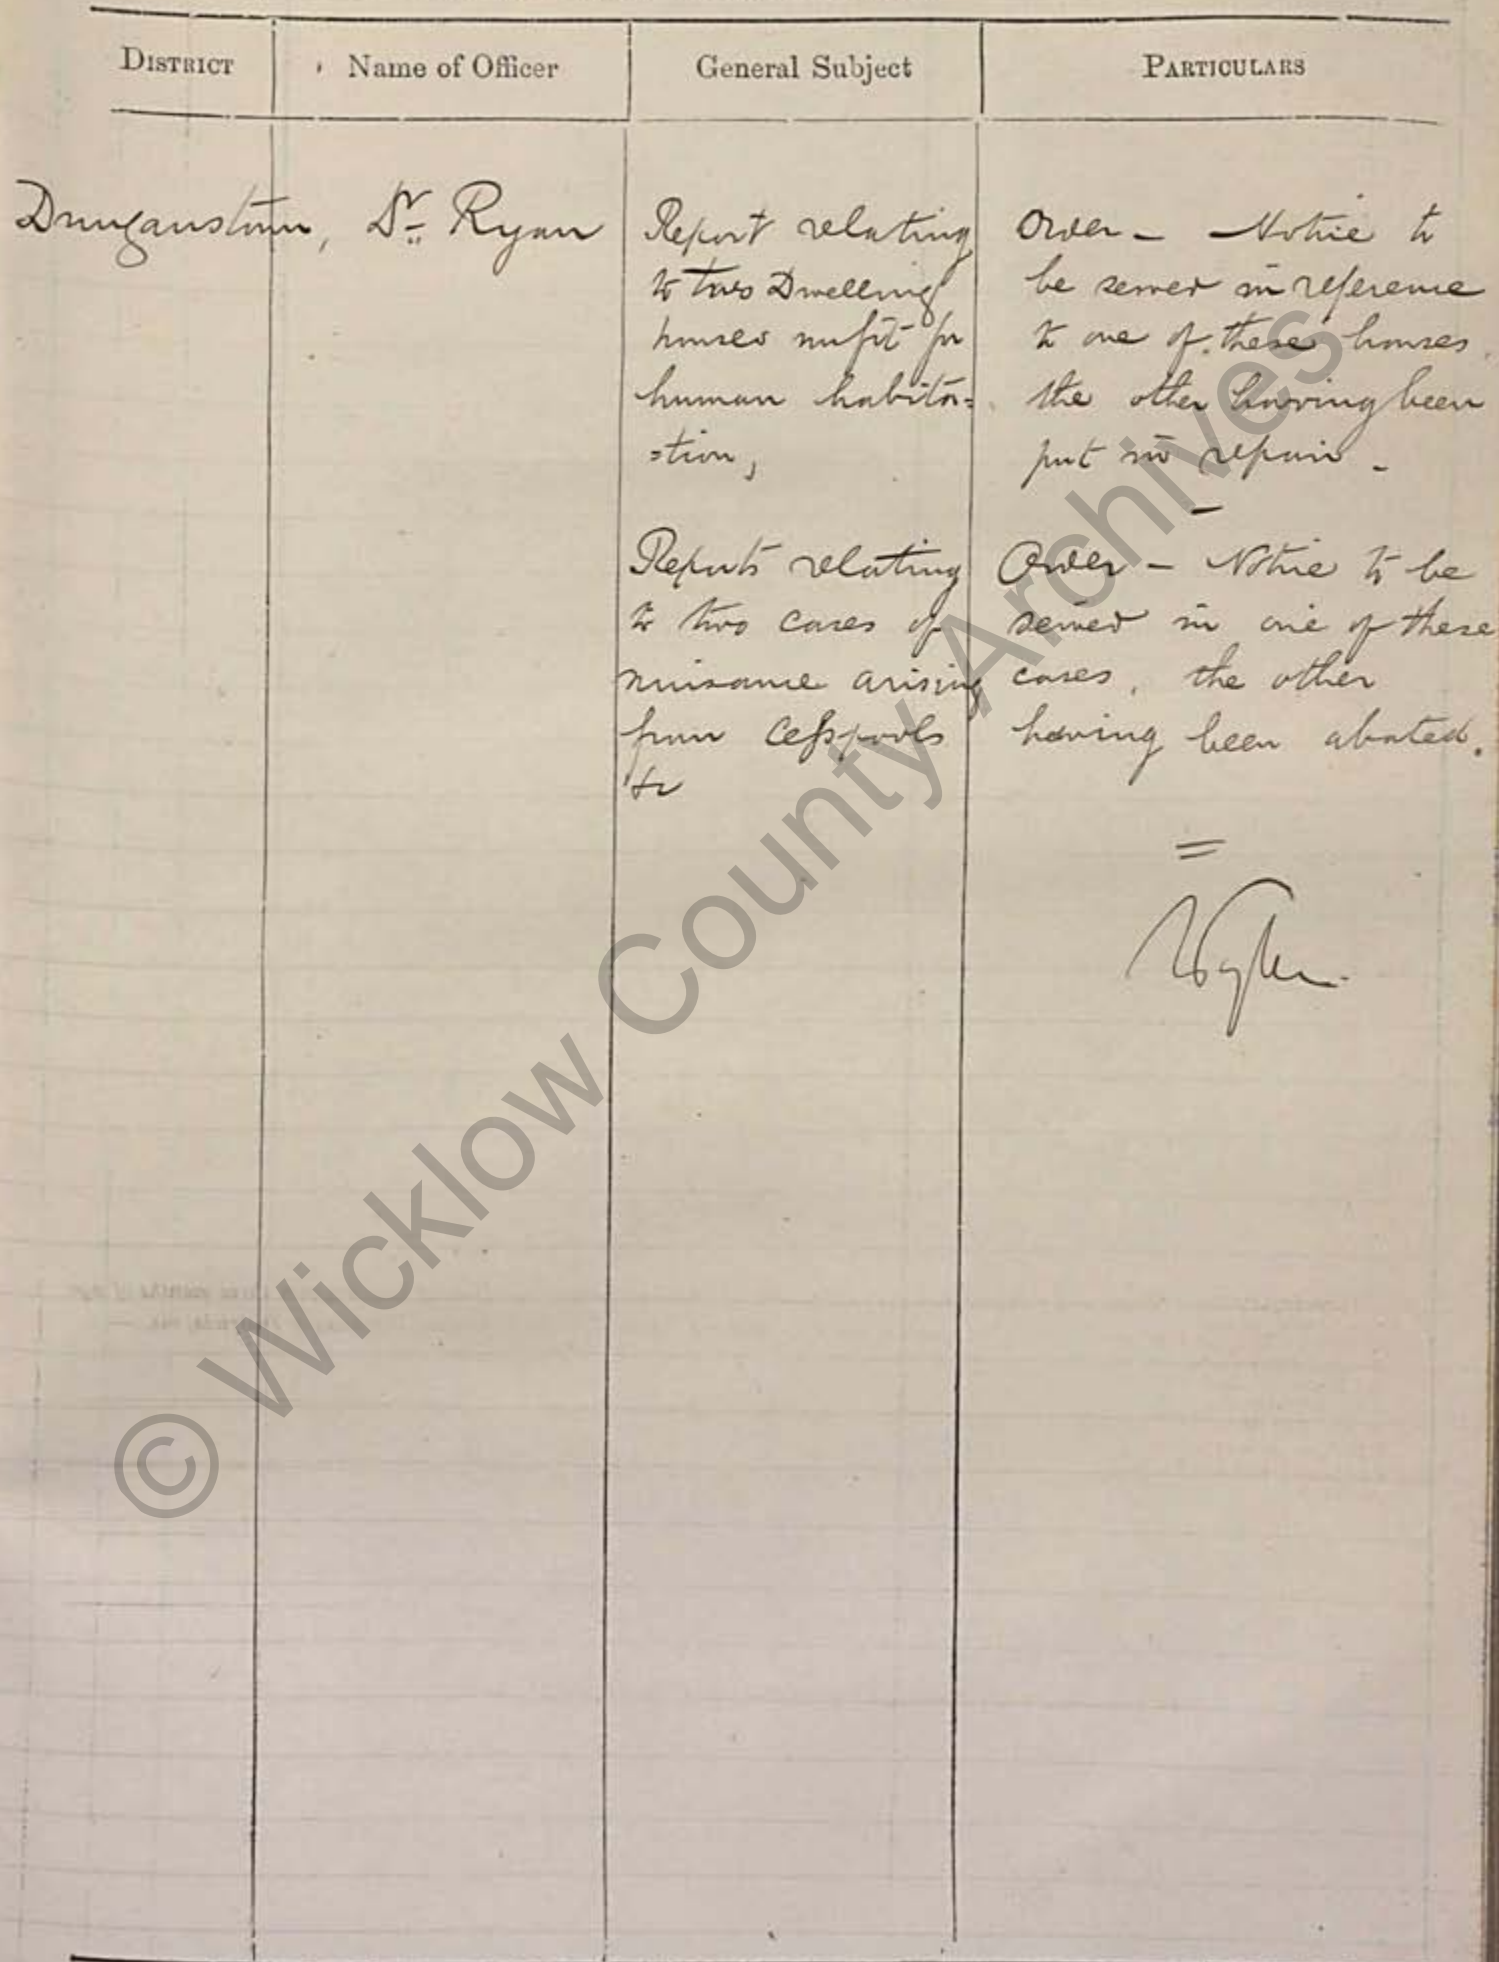 DISTRICT
Name of Officer
General Subject
PARTICULARS
Dunganstown, Dr. Ryan
Report relating
to two Dwelling
houses unfit for
human habita=
=tion,
Order – Notice to
be served in reference
to one of these houses,
the other having been
put in repair –
Reports relating
to two cases of
nuisance arising
from Cesspools
&c
Order – Notice to be
served in one of these
cases, the other
having been abated.
© Wicklow County Archives